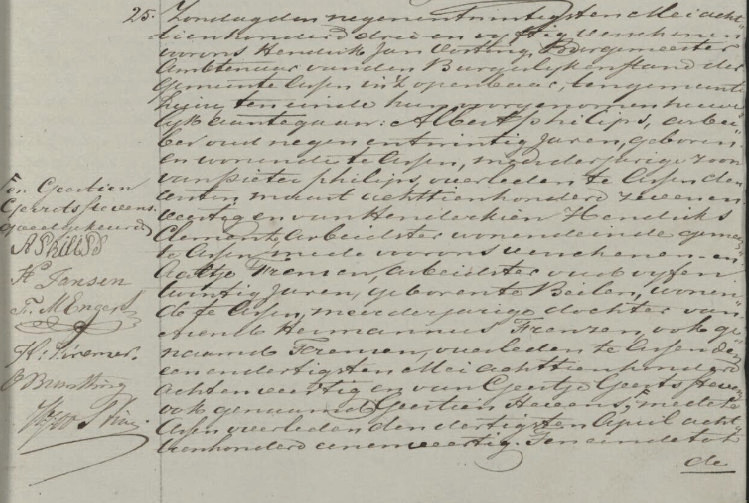 25. Zondag den negenentwintigsten Mei acht-
tienhonderd drie en vyftig verschenen
voor ons Hendrik Jan Oosting, Burgemeester
Ambtenaar van den Burgerlyken stand der
gemeente Assen in 't openbaar, ten gemeente
huize ten einde hun voorgenomen huwe-
lyk aan te gaan: Albert Philips, arbei-
der oud negen en twintig jaren, geboren
en wonende te Assen, meerderjarige zoon
van Pieter Philips, overleden te Assen den
maart achttienhonderd zeven en
veertig en van Henderkien Hendriks
Clement, arbeidster wonende in de gemeente
te Assen, mede voor ons verschenen en
Aaltje Fremen, arbeidster oud vyf en
twintig jaren, geboren te Beilen, wonen-
de te Assen, meerderjarige dochter van
Hermannus Frenzen, ook ge-
naamd Fremen, overleden te Assen den
een en dertigsten Mei achttienhonderd
acht en veertig en van Geertje Geerts
ook genaamd Geertien Stevens, F mede te
Assen overleden den dertigsten April acht-
tienhonderd een en veertig. Ten einde tot
de
F en Geertien
Gerrits Stevens
goedgekeurd
A Philips
H Jansen
F. M Engers
H: Kremer.